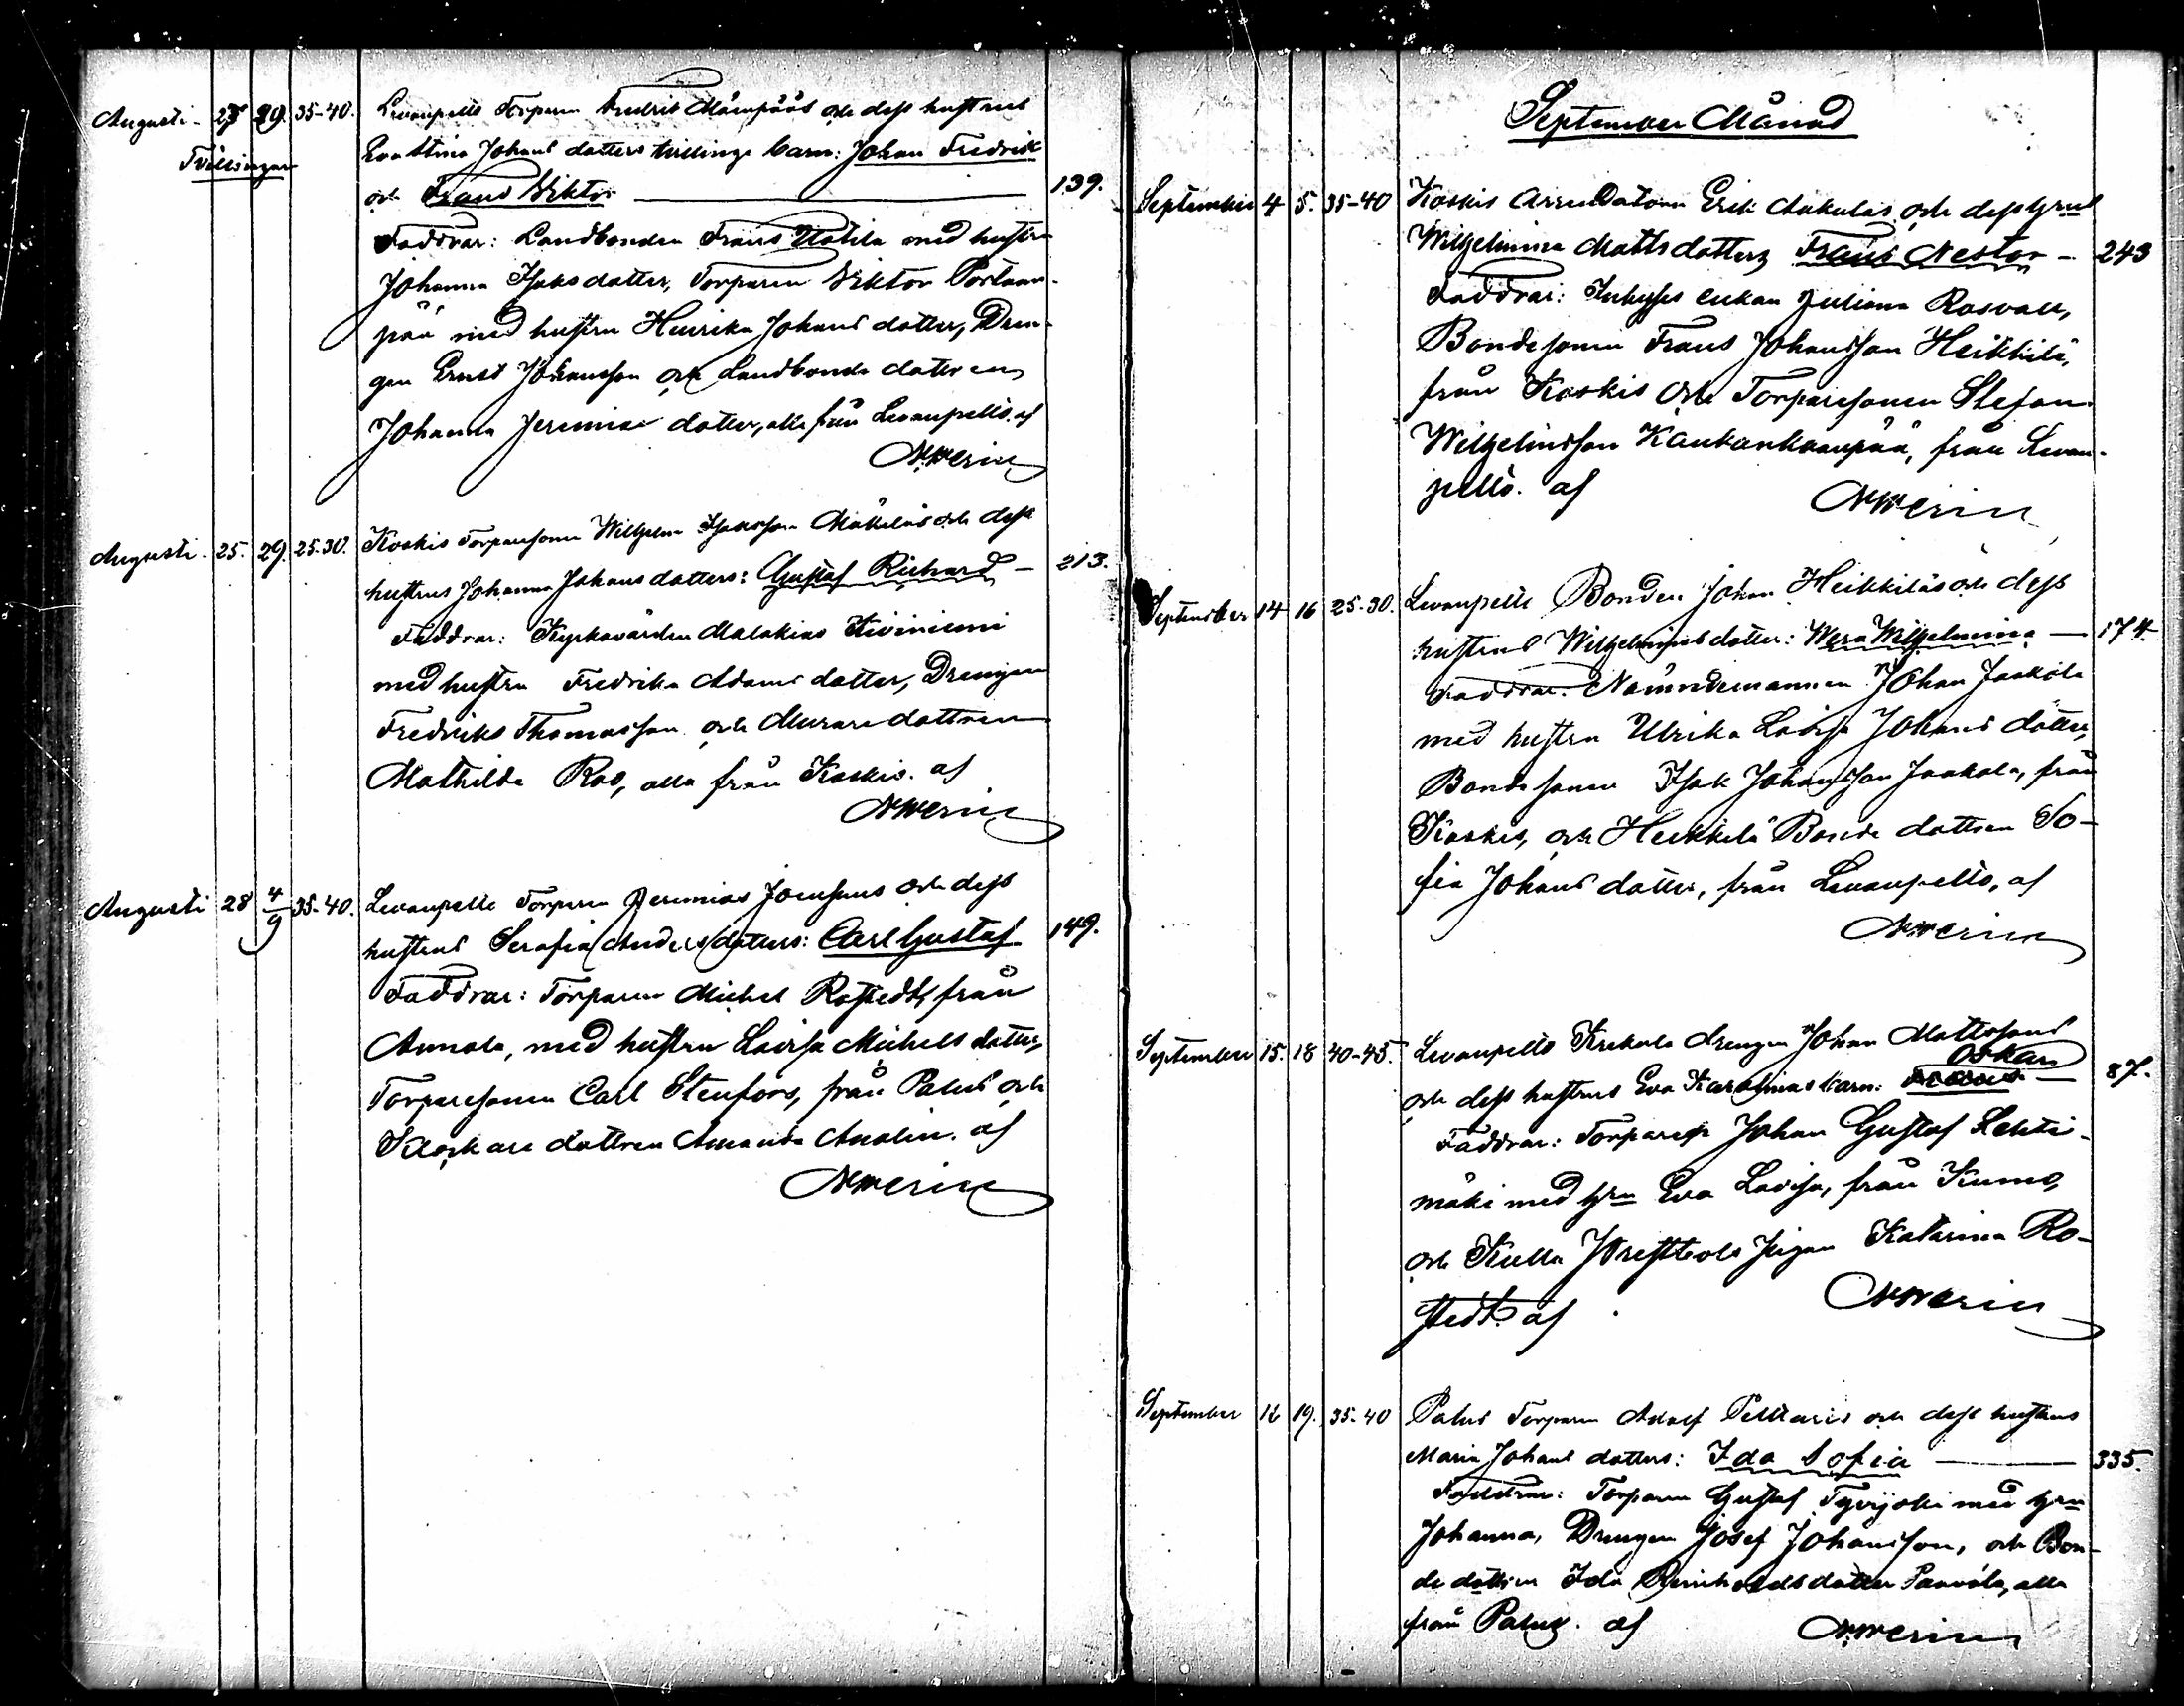 Augusti. 27 29. 35-40. Levanpelto Torparen Fredrik Mäenpääs och dess hustrus
Tvillingar Eva Stina Johans dotters tvillinge barn: Johan Fredrik
och Frans Viktor 139.
Faddrar: Landbonden Frans Uotila med hustru
Johanna Isaks dotter, Torparen Viktor Portaan-
pää med hustru Henrika Johans dotter, Dren-
gen Ernst Johansson och Landbonde dottren
Johanna Jeremiæ dotter, alla från Levanpelto. af
Augusti. 25. 29. 25-30. Koskis Torparesonen Wilhelm Isaksson Mäkeläs och dess
hustrus Johanna Johans dotters: Gustaf Richard — 213.
Faddrar: Kyrkovärden Malakias Kiviniemi
med hustru Fredrika Adams dotter, Drengen
Fredrik Thomasson och Murare dottren
Mathilda Ros, alla från Koskis. af
Augusti 28 4/9 35-40. Levanpelto Torparen Jeremias Josefssons och dess
hustrus Serafia Anders dotters: Carl Gustaf 149.
Faddrar: Torparen Michel Rostedt, från
Annola, med hustru Lovisa Michels dotter,
Torparesonen Carl Stenfors, från Palus och
Klockare dottren Amanda Analin. af
September Månad
September 4 5. 35-40 Koskis Arrendatorn Erik Aakulas och dess hrus
Wilhelmina Matts dotters Frans Nestor — 243
Faddrar: Inhyses enkan Juliana Rosvall,
Bondesonen Frans Johansson Heikkilä,
från Koskis och Torparesonen Stefan
Wilhelmsson Kaukankaanpää, från Levan-
pelto. af
September 14 16 25-30. Levanpelto Bonden Johan Heikkiläs och dess
hustrus Wilhelminas dotter: Wera Wilhelmina — 174
Faddrar: Nämndemannen Johan Jaakola
med hustru Ulrika Lovisa Johans dotter,
Bonde sonen Isak Johansson Jaakola, från
Koskis, och Heikkilä Bonde dottren So-
fia Johans dotter, från Levanpelto, af
September 15. 18 40-45. Levanpelto Krekola drengen Johan Mattssons
Oskar
och dess hustrus Eva Karolinas barn: — 87.
Faddrar: Torparen Johan Gustaf Lehti-
mäki med hru Eva Lovisa, från Kumo,
och Kulla Jungfru Katarina Ro-
stedt. af
September 12 19. 35-40 Palus Torparen Adolf Pelttaris och dess hustrus
Maria Johans dotters: Ida Sofia — 335.
Faddrar: Torparen Gustaf Tyvijoki med hru
Johanna, Drengen Josef Johansson, och Bon-
de dottren Ida Reinholds dotter Paavola, alla
från Palus. af